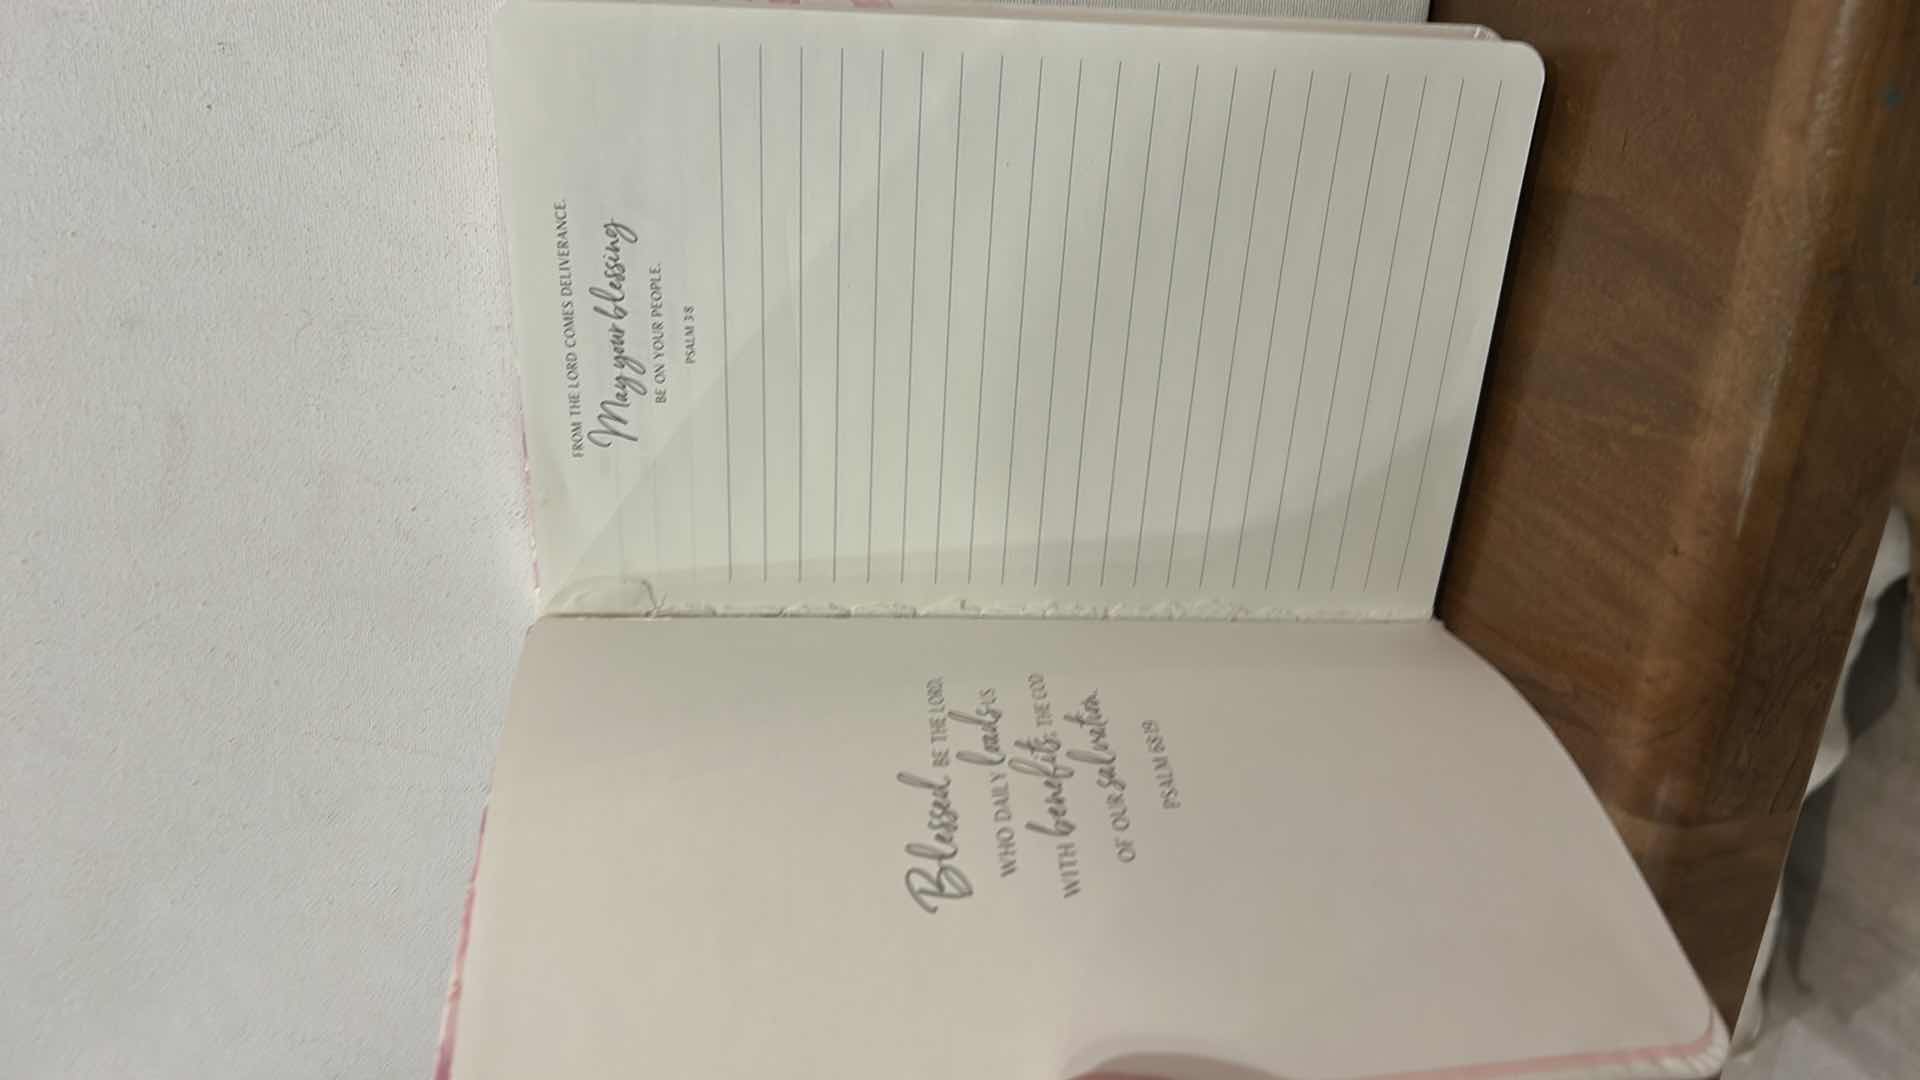 Blessed BE THE LORD,
WHO DAILY loads US
WITH benefits, THE GOD
OF OUR salvation.
PSALM 68:19
FROM THE LORD COMES DELIVERANCE.
May your blessing
BE ON YOUR PEOPLE.
PSALM 3:8